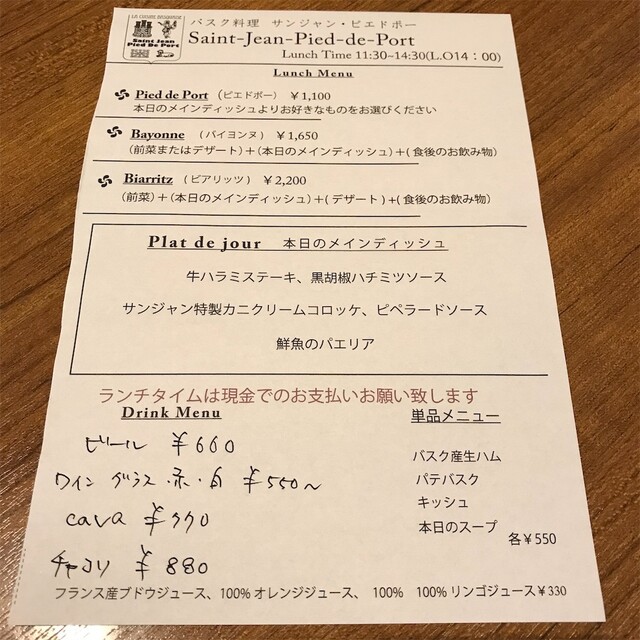 LA CUISINE BASQUAISE
Saint Jean
Pied De Port
バスク料理 サンジャン・ピエドポー
Saint-Jean-Pied-de-Port
Lunch Time 11:30~14:30(L.O14：00)
Lunch Menu
Pied de Port （ピエドポー） ￥1,100
本日のメインディッシュよりお好きなものをお選びください
Bayonne （バイヨンヌ） ￥1,650
（前菜またはデザート）＋（本日のメインディッシュ）＋( 食後のお飲み物）
Biarritz （ビアリッツ） ￥2,200
（前菜）＋（本日のメインディッシュ）＋( デザート ) +( 食後のお飲み物）
Plat de jour 本日のメインディッシュ
牛ハラミステーキ、黒胡椒ハチミツソース
サンジャン特製カニクリームコロッケ、ピペラードソース
鮮魚のパエリア
ランチタイムは現金でのお支払いお願い致します
Drink Menu
ビール ￥660
ワイン グラス 赤・白 ￥550〜
cava ￥770
チャコリ ￥880
単品メニュー
バスク産生ハム
パテバスク
キッシュ
本日のスープ
各￥550
フランス産ブドウジュース、100% オレンジジュース、 100% 100% リンゴジュース￥330